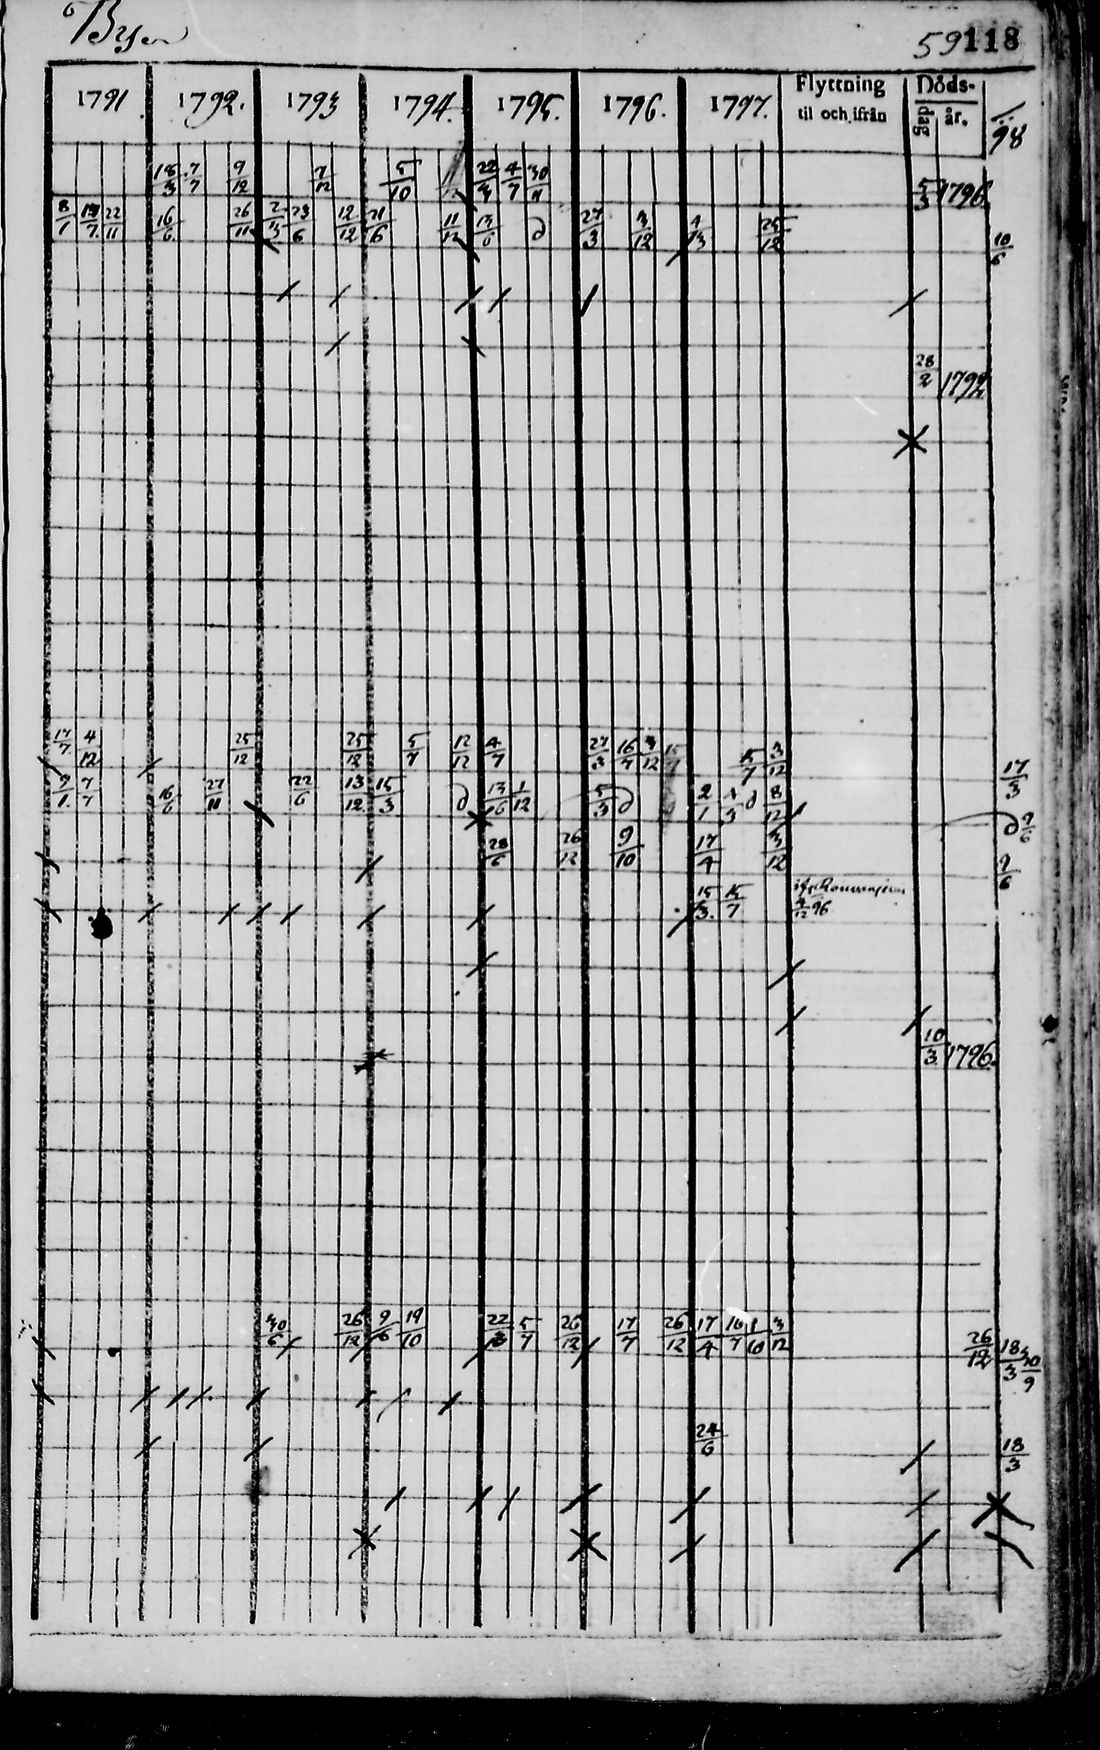 Byen 59 118
1791. 1792. 1793 1794. 1795. 1796. 1797. Flyttning til och ifrån Döds- dag år. /98
18/3 7/7 9/12 7/12 5/10 22/3 4/7 30/11 5/3 1796.
8/1 17/7 22/11 16/6 26/11 2/3 23/6 12/12 21/6 11/12 13/6 d 27/3 3/12 4/3 25/12
10/6
28/2 1792
17/7 4/12 25/12 25/12 5/7 12/12 4/7 27/3 16/7 3/12 15/7 3/12 17/3
9/1 7/7 16/6 27/11 22/6 13/12 15/3 d 13/6 1/12 5/3 d 2/1 4/3 d 8/12 d 9/6
28/6 26/12 9/10 17/4 3/12 9/6
15/3 15/7 ifr
4/12 96
10/3 1796.
30/6 26/12 9/6 19/10 22/3 5/7 26/12 17/7 26/12 17/4 16/7 1/10 3/12 26/12 18/3 30/9
24/6 18/3